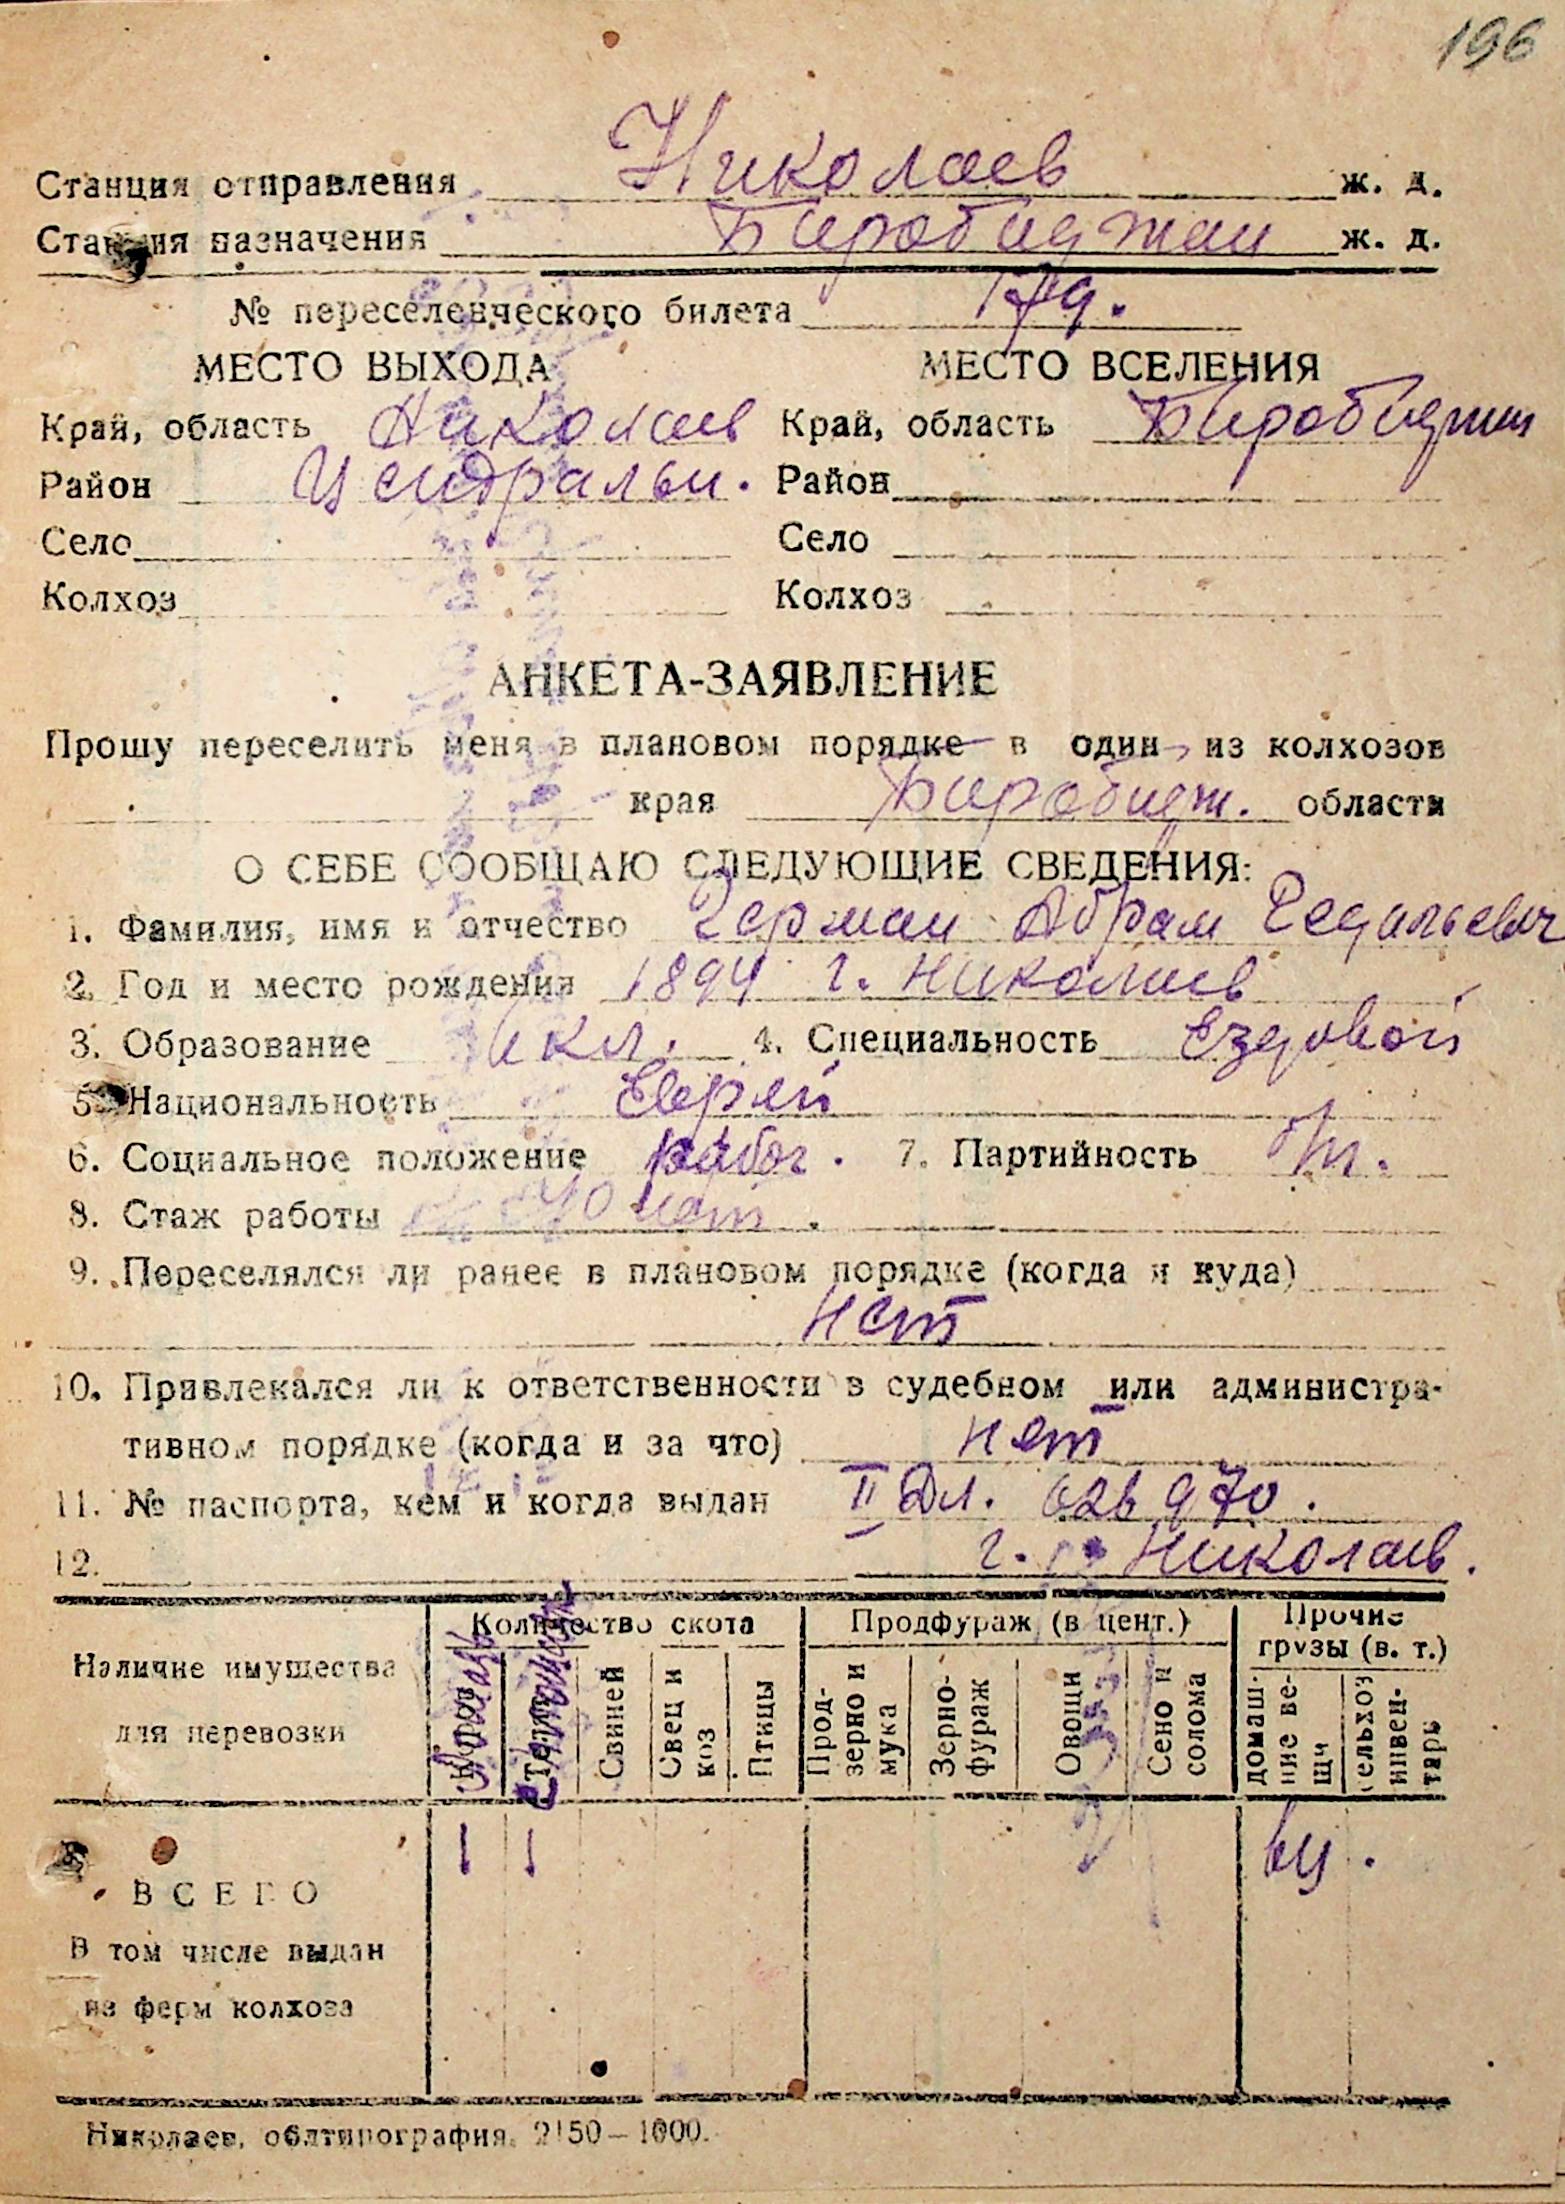 196
Станция отправления Николаев ж. д.
Станция назначения Биробиджан ж. д.
№ переселенческого билета 179.
МЕСТО ВЫХОДА МЕСТО ВСЕЛЕНИЯ
Край, область Николаев Край, область Биробиджан
Район Центральн. Район
Село Село
Колхоз Колхоз
АНКЕТА-ЗАЯВЛЕНИЕ
Прошу переселить меня в плановом порядке в один из колхозов
края Биробидж. области
О СЕБЕ СООБЩАЮ СЛЕДУЮЩИЕ СВЕДЕНИЯ:
1. Фамилия, имя и отчество Герман Абрам Гедальевич
2. Год и место рождения 1894 г. Николаев
3. Образование кл. 4. Специальность Ездовой
5. Национальность Еврей
6. Социальное положение рабоч. 7. Партийность
8. Стаж работы 40 лет.
9. Переселялся ли ранее в плановом порядке (когда и куда)
нет
10. Привлекался ли к ответственности в судебном или администра-
тивном порядке (когда и за что) нет
11. № паспорта, кем и когда выдан II 626970.
12. г. Николаев.
Наличие имущества для перевозки
Количество скота Продфураж (в цент.) Прочие грузы (в. т.)
Коров Телят Свиней Овец и коз Птицы Прод-зерно и мука Зерно-фураж Овощи Сено и солома домаш-ние ве-щи сельхоз инвен-тарь
ВСЕГО 1 1
В том числе выдан
из ферм колхоза
Николаев, облтипография. 2150—1000.